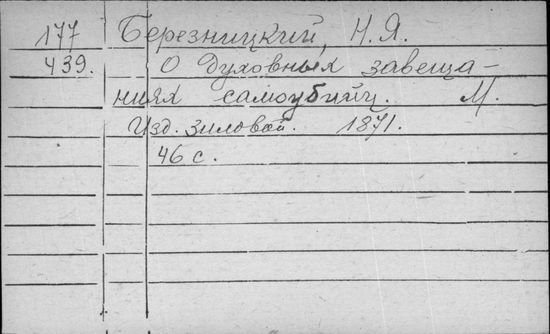 177 Березницкий, Н.Я.
439. О духовных завеща-
ниях самоубийц. М.
Изд. Зиловой. 1871.
46 с.